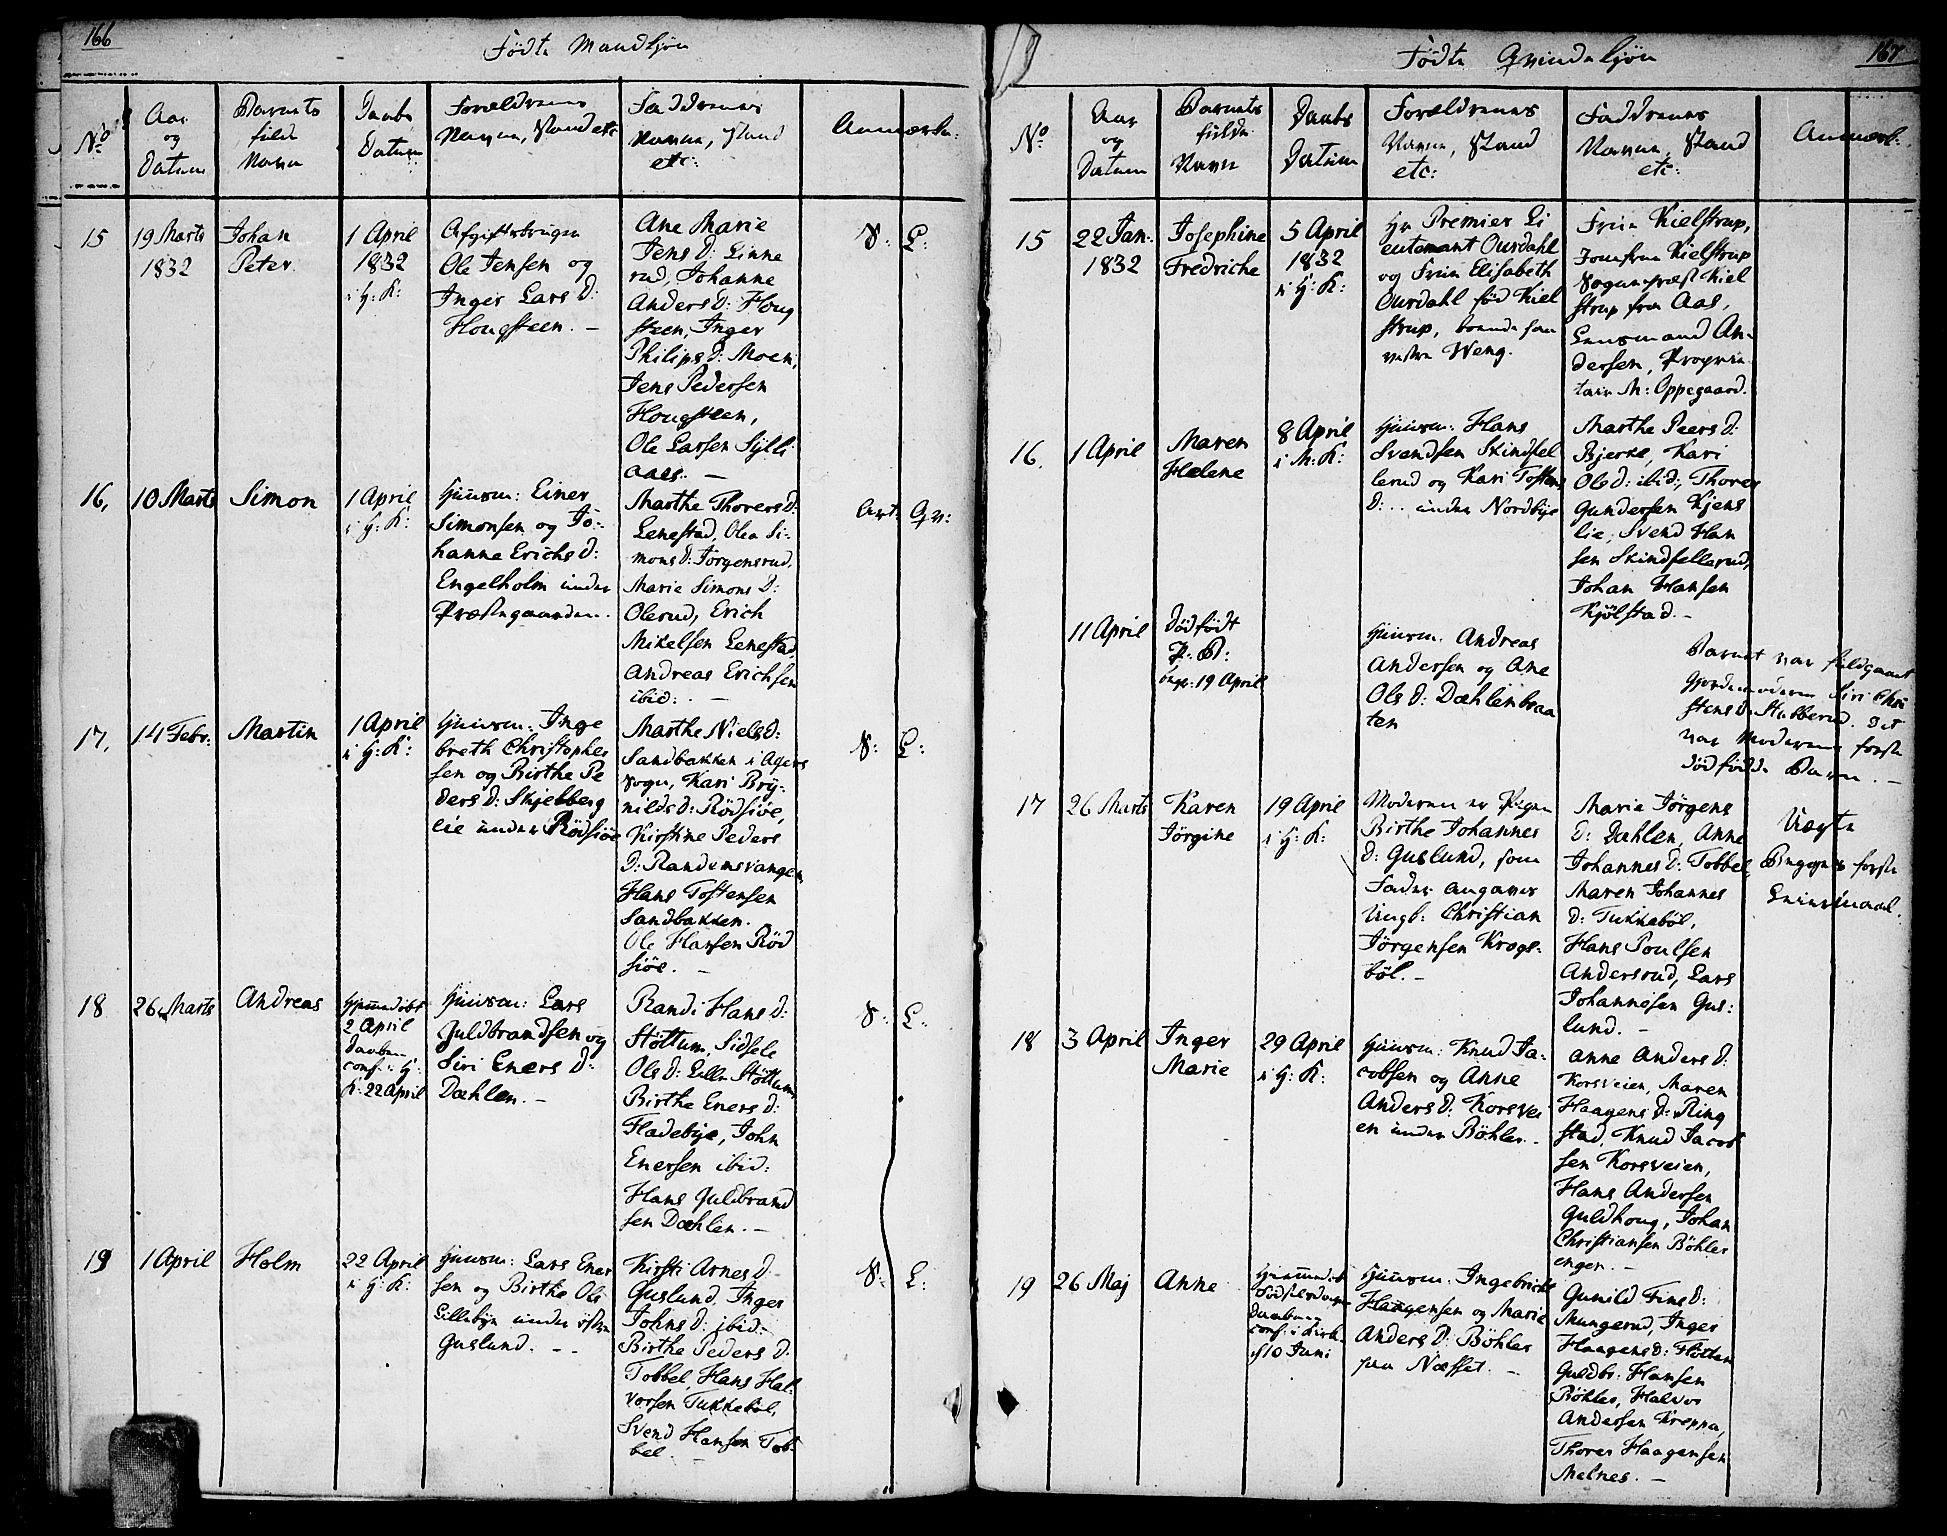 166
Fødte Mandkjøn
No
Aar
og
Datum
Barnets
fulde
Navn
Daabs
Datum
Forældrenes
Navn, Stand etc
Faddrenes
Navn, Stand
etc:
Anmærkn:
15
19 Marts
1832
Johan
Peter
1 April
1832
i H: K:
Afgiftsbruger
Ole Jensen og
Inger Lars D:
Hougsteen. –
Ane Marie
Jens D: Linne
rud, Johanne
Anders D: Houg
steen, Inger
Philips D: Moen,
Jens Pedersen
Hougsteen,
Ole Larsen Sylli
aaes. –
V: L:
16,
10 Marts
Simon
1 April
i H: K:
Huusm: Einer
Simonsen og Jo-
hanne Erichs D:
Engelholm under
Præstegaarden.
Marthe Thorers D:
Lenestad, Olea Si-
mons D: Jørgensrud.
Marie Simons D:
Olerud, Erich
Mikelsen Lenestad,
Andreas Erichsen
ibid: –
Art: Qv:
17,
14 Febr:
Martin
1 April
i H: K:
Huusm: Inge
breth Christopher
sen og Birthe Pe
ders D: Skjelbberg
lie under Rødsiøe
Marthe Niels D:
Sandbakken i Agers
Sogn, Kari Bry-
nilds D: Rødsiøe,
Kirstine Peders
D: Randemsvangen,
Hans Tostensen
Sandbakken.
Ole Hansen Rød
siøe. –
V: L:
18
26 Marts
Andreas
Hjemmedøbt
2 April
Daaben
conf: i H:
K: 22 April
Huusm: Lars
Guldbrandsen og
Siri Eners D:
Dæhlen. –
Randi Hans D:
Støttum, Sidsele
Ols D: Lille Støttum,
Birthe Eners D:
Fladebye, John
Enersen ibid:
Hans Guldbrand
sen Dæhlen. –
V: L:
19
1 April
Holm
22 April
i H: K:
Huusm: Lars Ener
sen og Birthe Ols
Lillebye under østre
Guslund. –
Kirsti Arnes D
Guslund, Inger
Johns D: ibid:
Birthe Peders D:
Tobbel, Hans Hal-
vorsen Tukkebøl,
Svend Hansen Tob-
bel. –
V: L:
167
Fødte Qvindekjøn
No
Aar
og
Datum
Barnets
fulde
Navn
Daabs
Datum
Forældrenes
Navn, Stand
etc:
Faddrenes
Navn, Stand
etc:
Anmærk:
15
22 Jan:
1832
Josephine
Fredriche
5 April
1832
i H: K:
Hr Premier Li
eutenant Ourdahl
og Frue Elisabeth
Ourdahl fød Kiel
strup, boende paa
vestre Weng.
Frue Kielstrup,
Jomfrue Kielstrup
Sognepræst Kiel
strup fra Aas,
Lensmand An-
dersen, Proprie
tair M: Oppegaard.
16.
1 April
Maren
Helene
8 April
i M: K:
Huusm: Hans
Svendsen Skindfel
lerud og Kari Tostens
D: .. under Nordbye
Marthe Peers D:
Bjerke, Kari
Ols D: ibid:, Thorer
Gundersen Kjens
lie, Svend Han
sen Skindfellerud,
Johan Hansen
Kjølstad. –
11 April
Dødfødt
P: B:
begr: 19 April
Huusm: Andreas
Andersen og Ane
Ols D: Dæhlenbraa
ten
Barnet var fuldgaaet
Gjordemoderen Siri Chri
stens D: Stubberud. Det
var Moderens første
dødfødde Barn. –
17
26 Marts
Karen
Jørgine
19 April
i H: K:
Moderen er Pigen
Birthe Johannes
D: Guslund, som
Fader angaves
Ungk: Christian
Jørgensen Krogs-
bøl. –
Marie Jørgens
D: Dæhlen, Anne
Johannes D: Tobbel,
Maren Johannes
D: Tukkebøl,
Hans Poulsen
Andersrud, Lars
Johannesen Gus-
lund. –
Uægte
Begges første
Leiermaal.
18
3 April
Inger
Marie
29 April
i H: K:
Huusm: Knud Ja-
cobsen og Anne
Anders D: Korsvei
en under Bøhler.
Anne Anders D:
Korsveien, Maren
Haagens D: Ring
stad, Knud Jacob
sen Korsveien,
Hans Andersen
Guldhoug, Johan
Christiansen Bøhler
engen. –
19
26 Maj
Anne
Hjemmedøbt
Daaben
conf: i Kirk.
10 Juni
Huusm: Ingebricht
Haagensen og Marie
Anders D: Bøhler
paa Næsset. –
Gunild Fins D:
Mungerud, Inger
Haagens D: Hotten
Guldbr: Hansen
Bøhler, Halvor
Andersen Kreppa,
Thorer Haagensen
Melnes. –